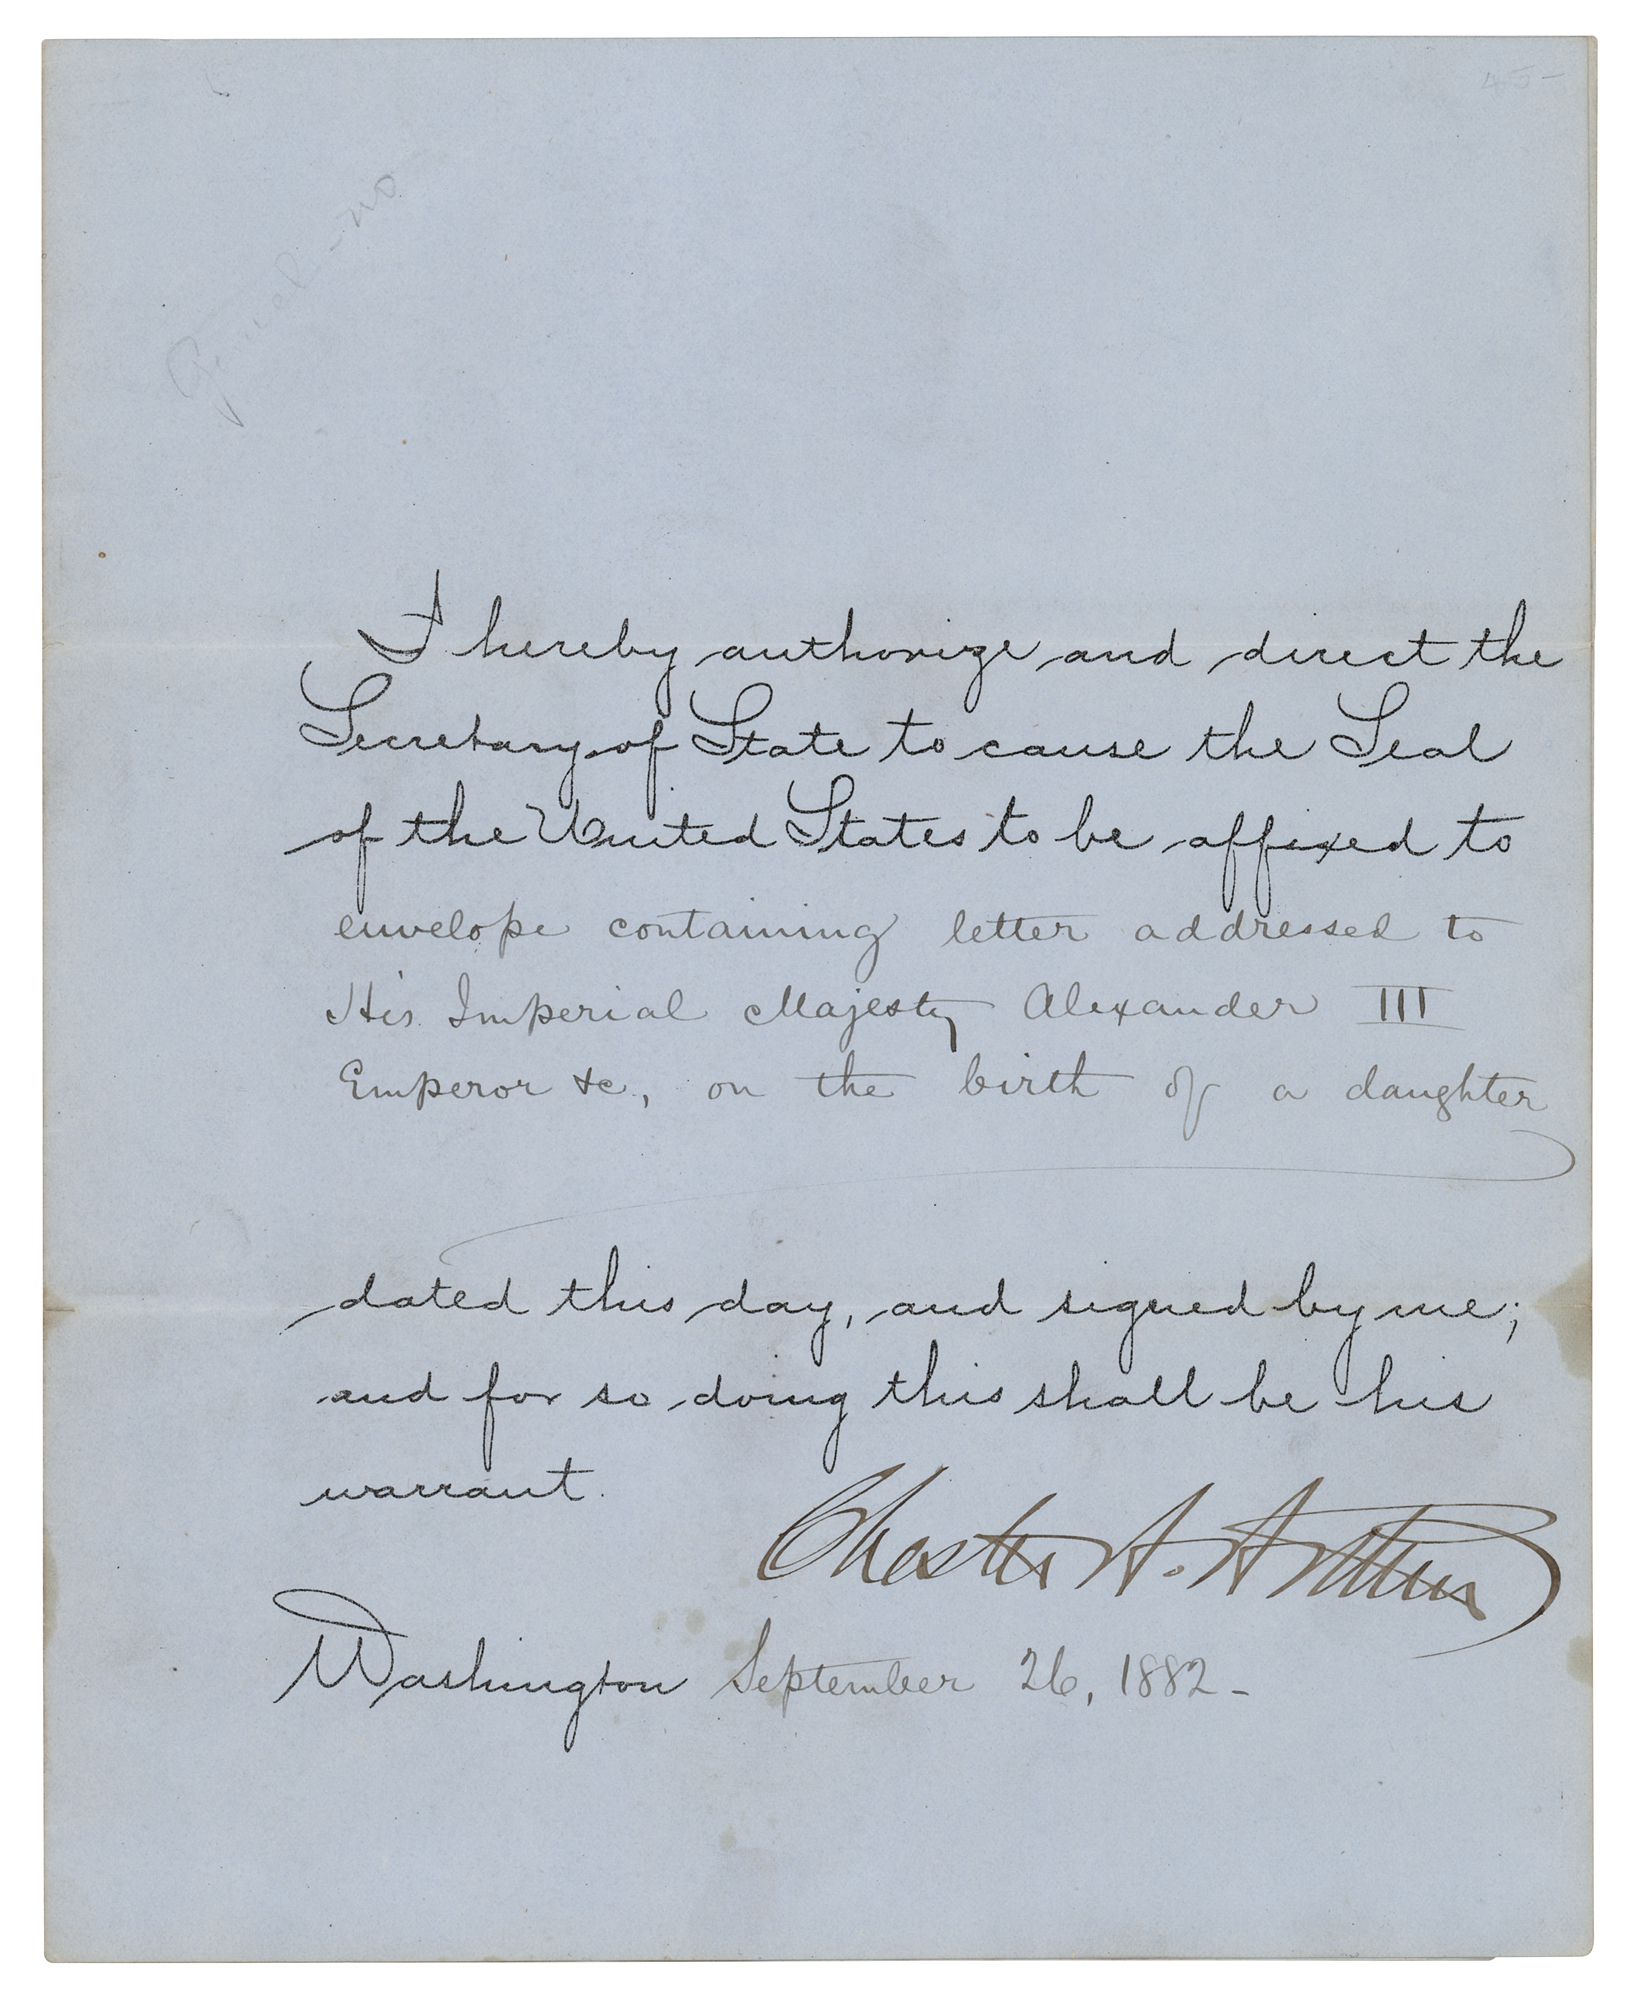 45-
I hereby authorize and direct the
Secretary of State to cause the Seal
of the United States to be affixed to
envelope containing letter addressed to
His Imperial Majesty Alexander III
Emperor &c, on the birth of a daughter
dated this day, and signed by me;
and for so doing this shall be his
warrant.
Chester A. Arthur
Washington September 26, 1882-